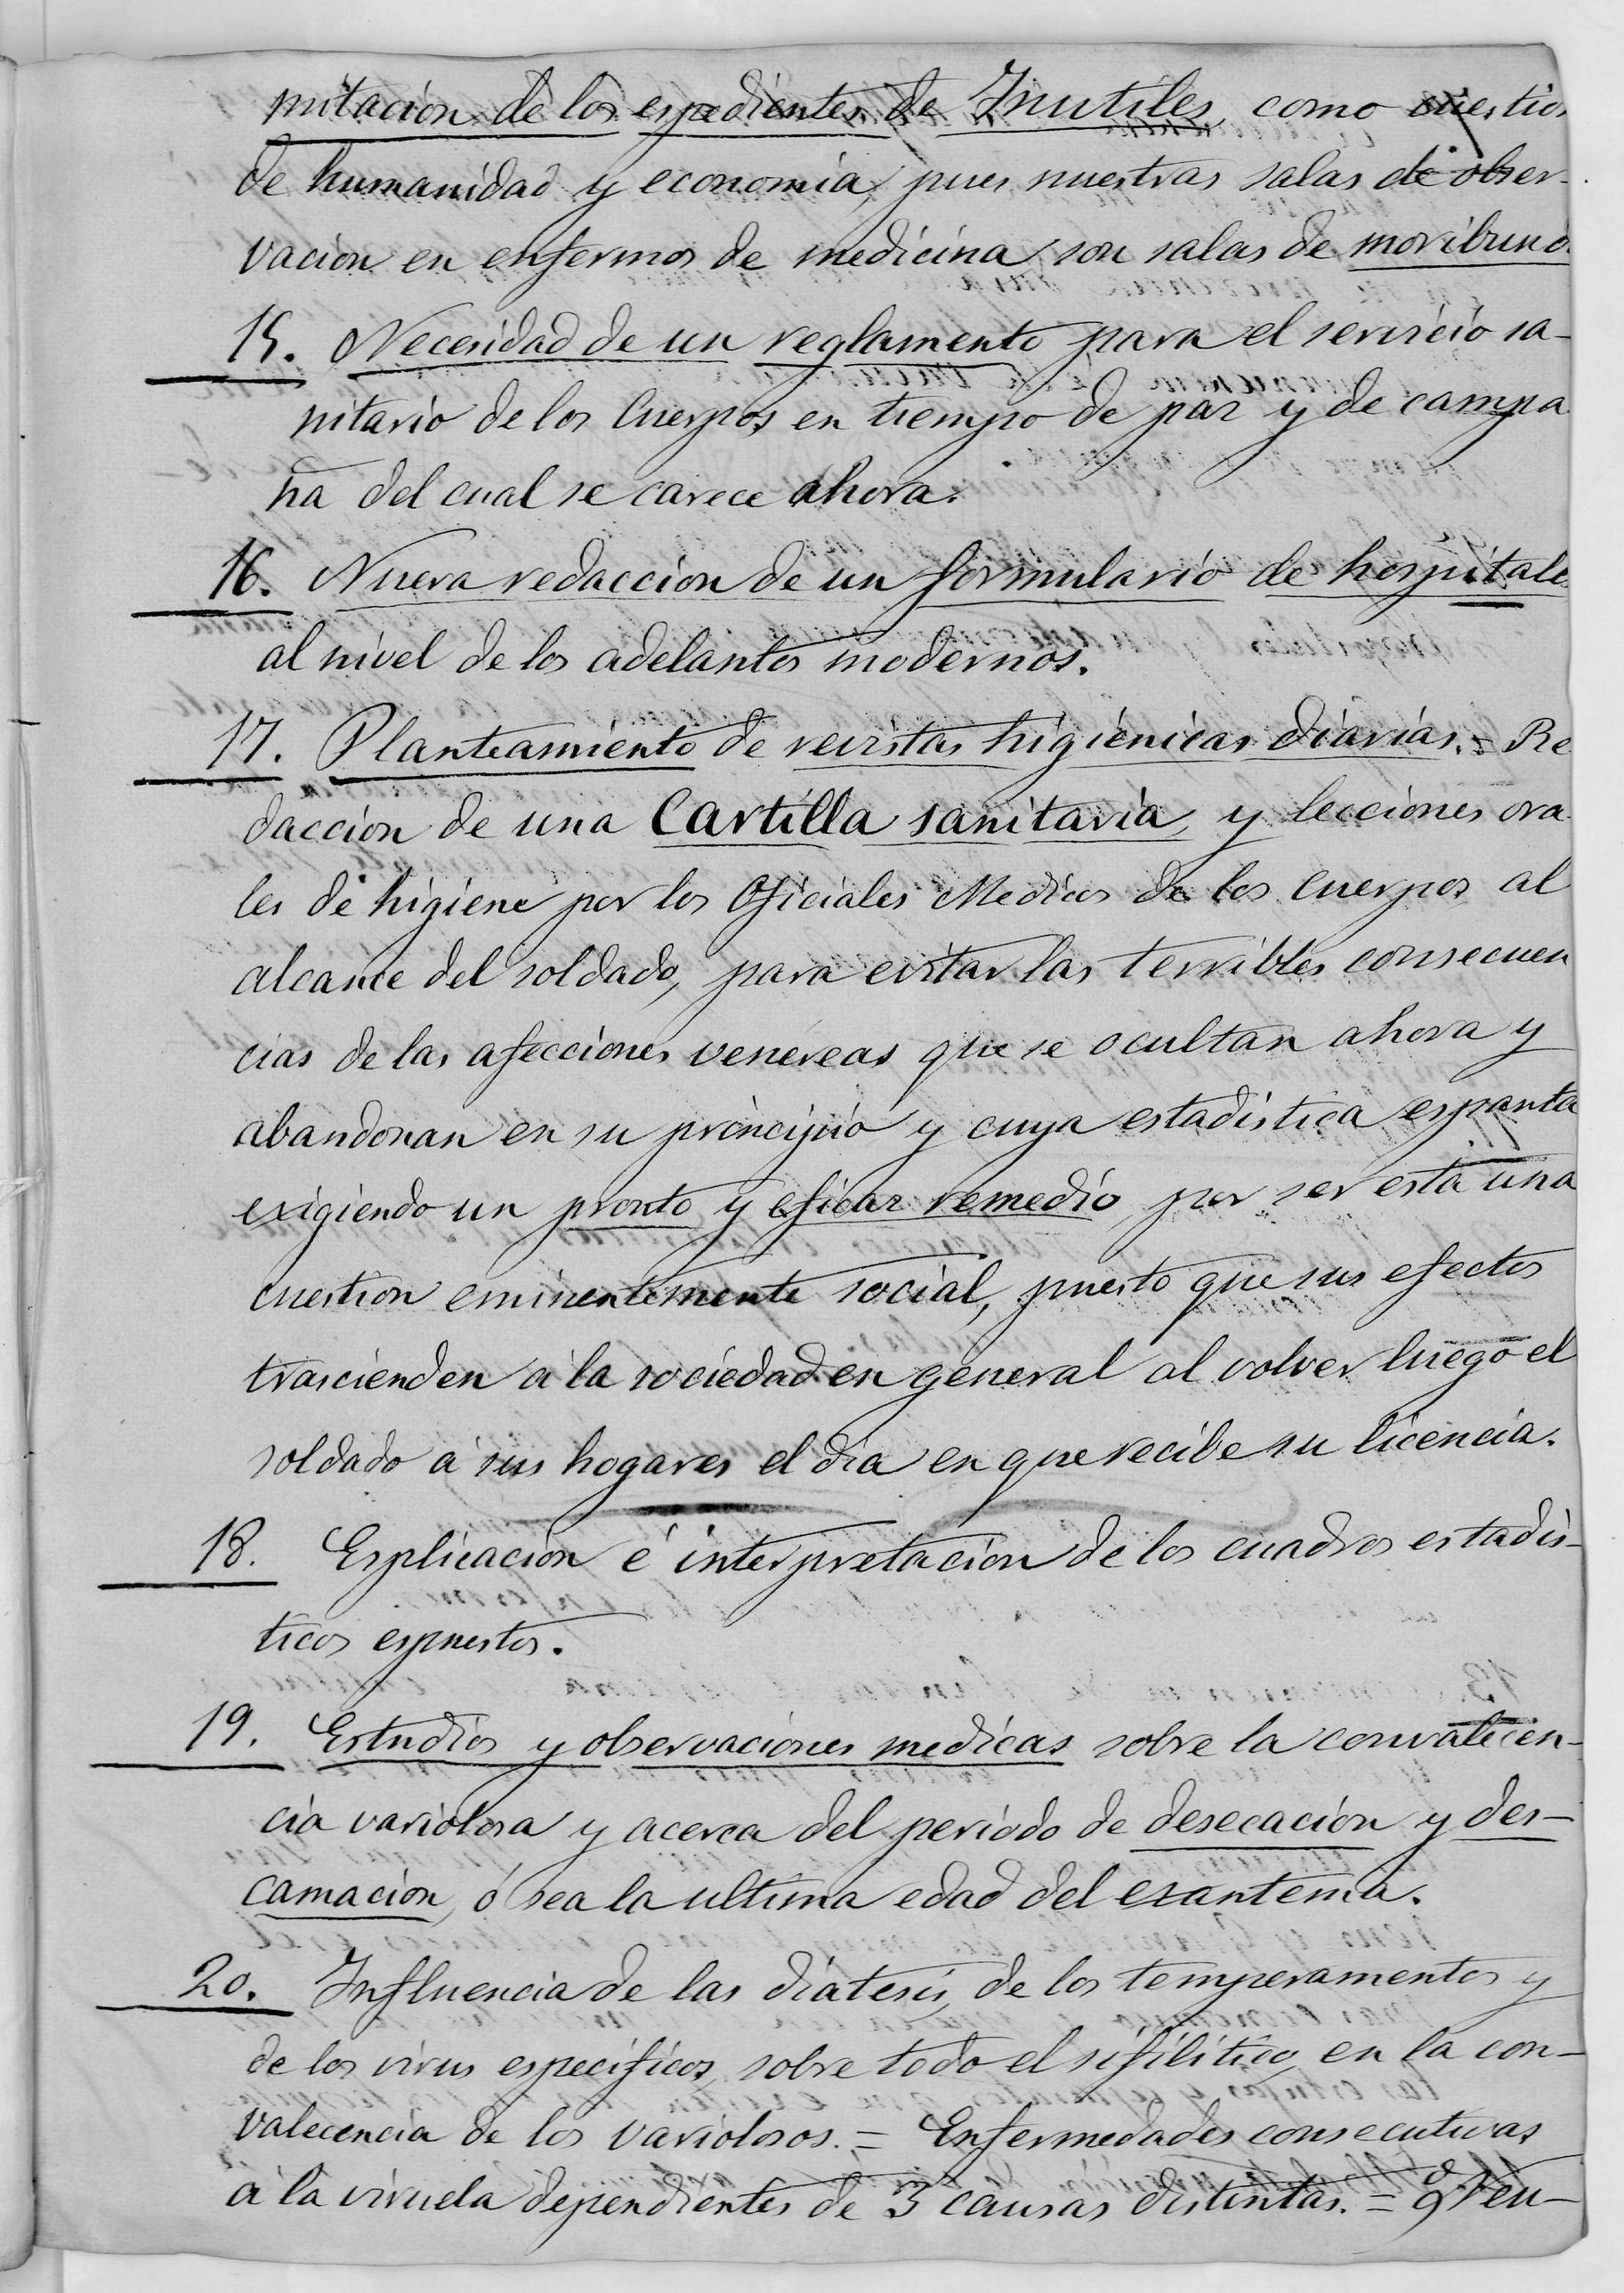 mitacion de los espedientes de Inutiles, como cuestion
de humanidad y economia, pues nuestras salas de obser-
vacion en enfermos de medicina son salas de moribund
15. Necesidad de un reglamento para el servicio sa-
nitario de los Cuerpos en tiempo de paz y de campa
ña del cual se carece ahora.
16. Nueva redaccion de un formulario de hospitale
al nivel de los adelantos modernos.
17. Planteamiento de revistas higiénicas diarias. = Re
daccion de una Cartilla sanitaria, y lecciones ora
les de higiene por los Oficiales Medicos de los Cuerpos al
alcance del soldado, para evitar las terribles consecuen
cias de las afecciones venereas que se ocultan ahora y
abandonan en su principio y cuya estadistica espanta
exigiendo un pronto y eficaz remedio, por ser esta una
cuestion eminentemente social, puesto que sus efectos
trascienden á la sociedad en general al volver luego el
soldado á sus hogares el dia en que recibe su licencia.
18. Esplicacion é interpretacion de los cuadros estadis-
ticos espuestos.
19. Estudios y observaciones medicas sobre la convalecen-
cia variolosa y acerca del periodo de desecacion y des-
camacion, ó sea la ultima edad del exantema.
20. Influencia de las diatesis, de los temperamentos y
de los virus especificos, sobre todo el sifilitico, en la con-
valecencia de los variolosos. = Enfermedades consecutivas
á la viruela dependientes de 3 causas distintas. =